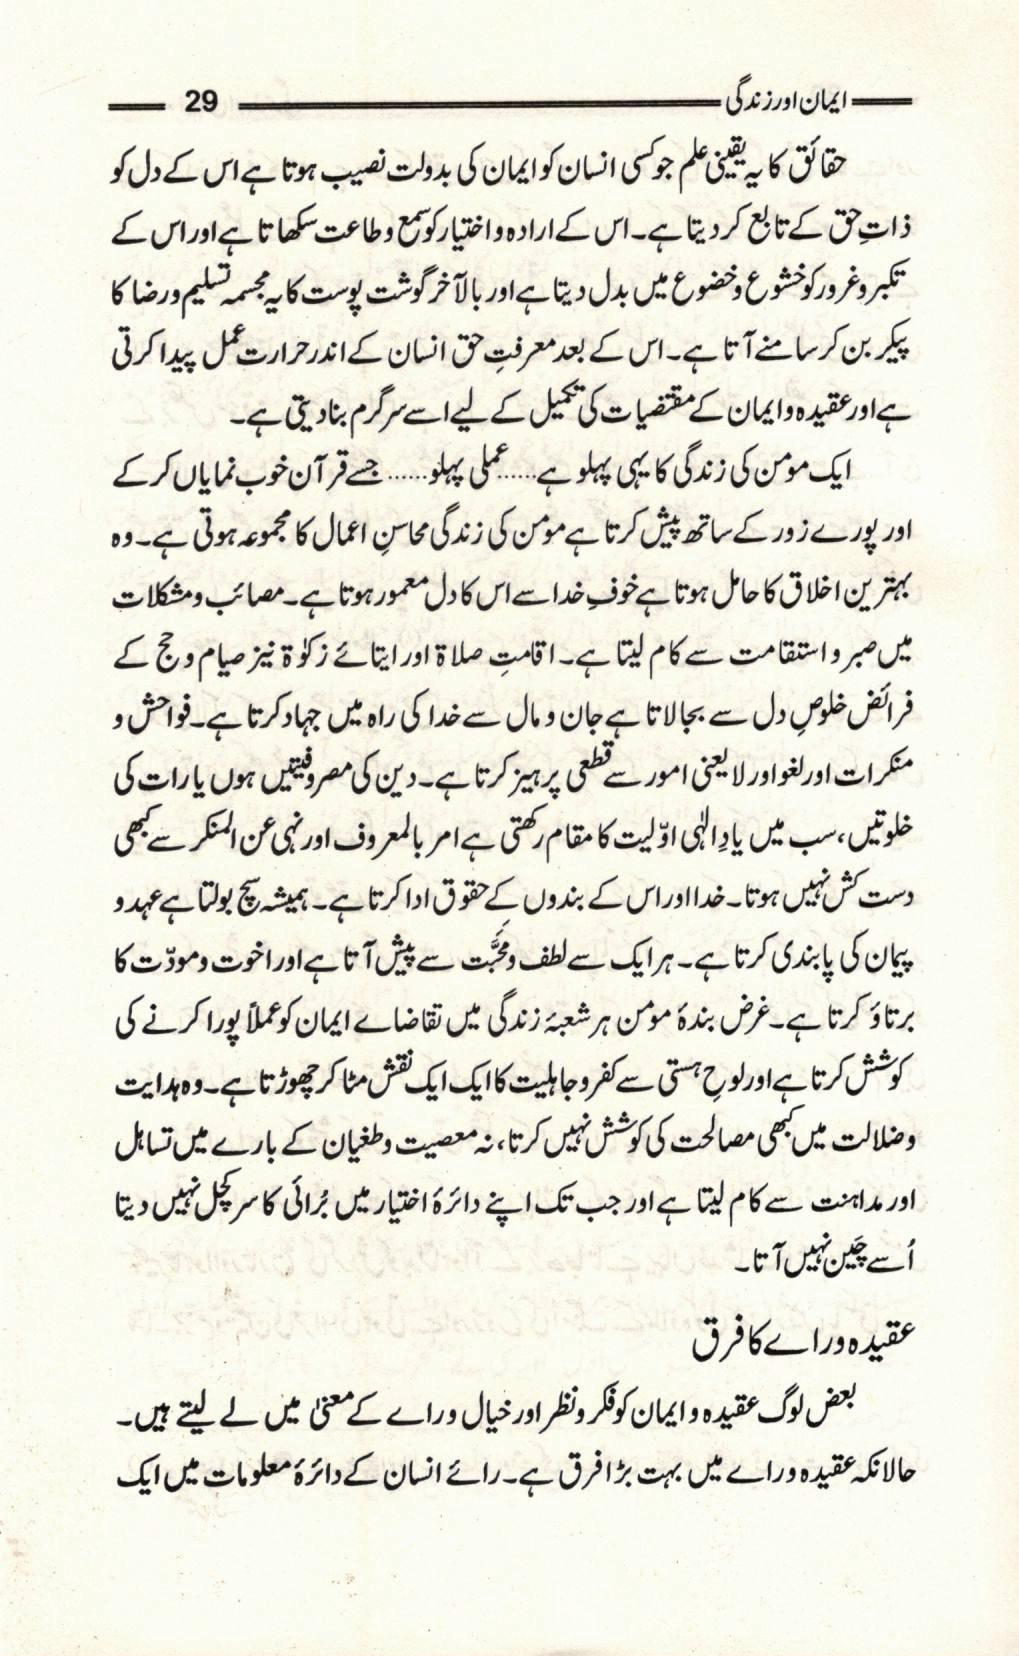 ایمان اور زندگی 29
حقائق کا یہ یقینی علم جو کسی انسان کو ایمان کی بدولت نصیب ہوتا ہے اس کے دل کو
ذاتِ حق کے تابع کر دیتا ہے۔ اس کے ارادہ و اختیار کو سمع و طاعت سکھاتا ہے اور اس کے
تکبر و غرور کو خشوع و خضوع میں بدل دیتا ہے اور بالآخر گوشت پوست کا یہ مجسمہ تسلیم و رضا کا
پیکر بن کر سامنے آتا ہے۔ اس کے بعد معرفتِ حق انسان کے اندر حرارت عمل پیدا کرتی
ہے اور عقیدہ و ایمان کے مقتضیات کی تکمیل کے لیے اسے سرگرم بنا دیتی ہے۔
ایک مومن کی زندگی کا یہی پہلو ہے......عملی پہلو...... جسے قرآن خوب نمایاں کر کے
اور پورے زور کے ساتھ پیش کرتا ہے مومن کی زندگی محاسنِ اعمال کا مجموعہ ہوتی ہے۔ وہ
بہترین اخلاق کا حامل ہوتا ہے خوفِ خدا سے اس کا دل معمور ہوتا ہے۔ مصائب و مشکلات
میں صبر و استقامت سے کام لیتا ہے۔ اقامتِ صلاۃ اور ایتائے زکوٰۃ نیز صیام و حج کے
فرائض خلوصِ دل سے بجا لاتا ہے جان و مال سے خدا کی راہ میں جہاد کرتا ہے۔ فواحش و
منکرات اور لغو اور لایعنی امور سے قطعی پرہیز کرتا ہے۔ دین کی مصروفیتیں ہوں یا رات کی
خلوتیں، سب میں یادِ الٰہی اوّلیت کا مقام رکھتی ہے امر بالمعروف اور نہی عن المنکر سے کبھی
دست کش نہیں ہوتا۔ خدا اور اس کے بندوں کے حقوق ادا کرتا ہے۔ ہمیشہ سچ بولتا ہے عہد و
پیمان کی پابندی کرتا ہے۔ ہر ایک سے لطف و محبَّت سے پیش آتا ہے اور اخوت و مودّت کا
برتاؤ کرتا ہے۔ غرض بندۂ مومن ہر شعبۂ زندگی میں تقاضاے ایمان کو عملاً پورا کرنے کی
کوشش کرتا ہے اور لوحِ ہستی سے کفر و جاہلیت کا ایک ایک نقش مٹا کر چھوڑتا ہے۔ وہ ہدایت
و ضلالت میں کبھی مصالحت کی کوشش نہیں کرتا، نہ معصیت و طغیان کے بارے میں تساہل
اور مداہنت سے کام لیتا ہے اور جب تک اپنے دائرۂ اختیار میں بُرائی کا سر کچل نہیں دیتا
اُسے چَین نہیں آتا۔
عقیدہ و راے کا فرق
بعض لوگ عقیدہ و ایمان کو فکر و نظر اور خیال و راے کے معنیٰ میں لے لیتے ہیں۔
حالانکہ عقیدہ و راے میں بہت بڑا فرق ہے۔ رائے انسان کے دائرۂ معلومات میں ایک